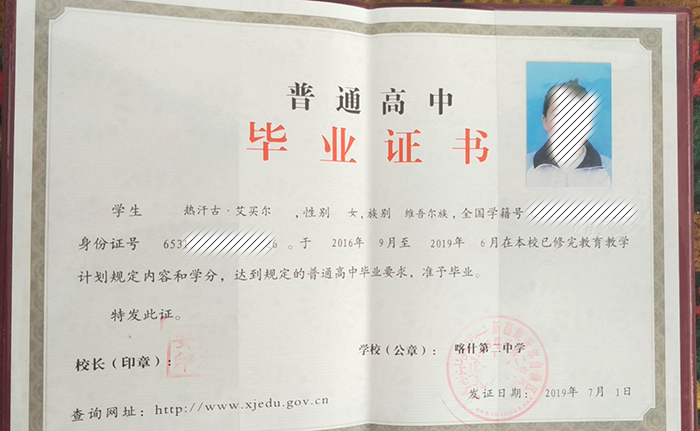 普通高中
毕业证书
学生 热汗古·艾买尔 ,性别 女,族别 维吾尔族,全国学籍号
身份证号 653 6 。于 2016年 9月至 2019年 6月在本校已修完教育教学
计划规定内容和学分,达到规定的普通高中毕业要求,准予毕业。
特发此证。
校长(印章):
学校(公章): 喀什第二中学
发证日期: 2019年 7月 1日
查询网址: http://www.xjedu.gov.cn